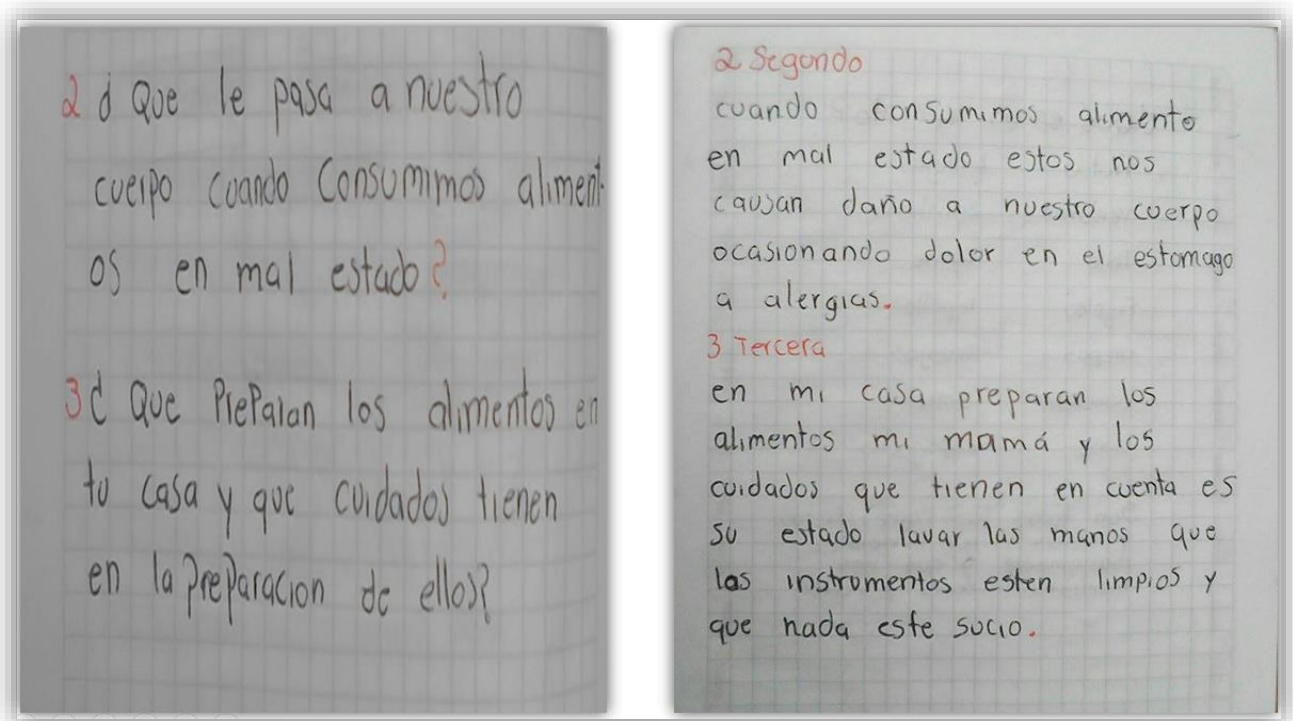 2 ¿ Que le pasa a nuestro
cuerpo cuando Consumimos aliment
os en mal estado?
3 ¿ Que PrePalan los alimentos en
tu casa y que cuidados tienen
en la PreParacion de ellos?
2 Segundo
cuando consumimos alimento
en mal estado estos nos
causan daño a nuestro cuerpo
ocasionando dolor en el estomago
a alergias.
3 Tercera
en mi casa preparan los
alimentos mi mamá y los
cuidados que tienen en cuenta es
su estado lavar las manos que
los instrumentos esten limpios y
que nada este sucio.